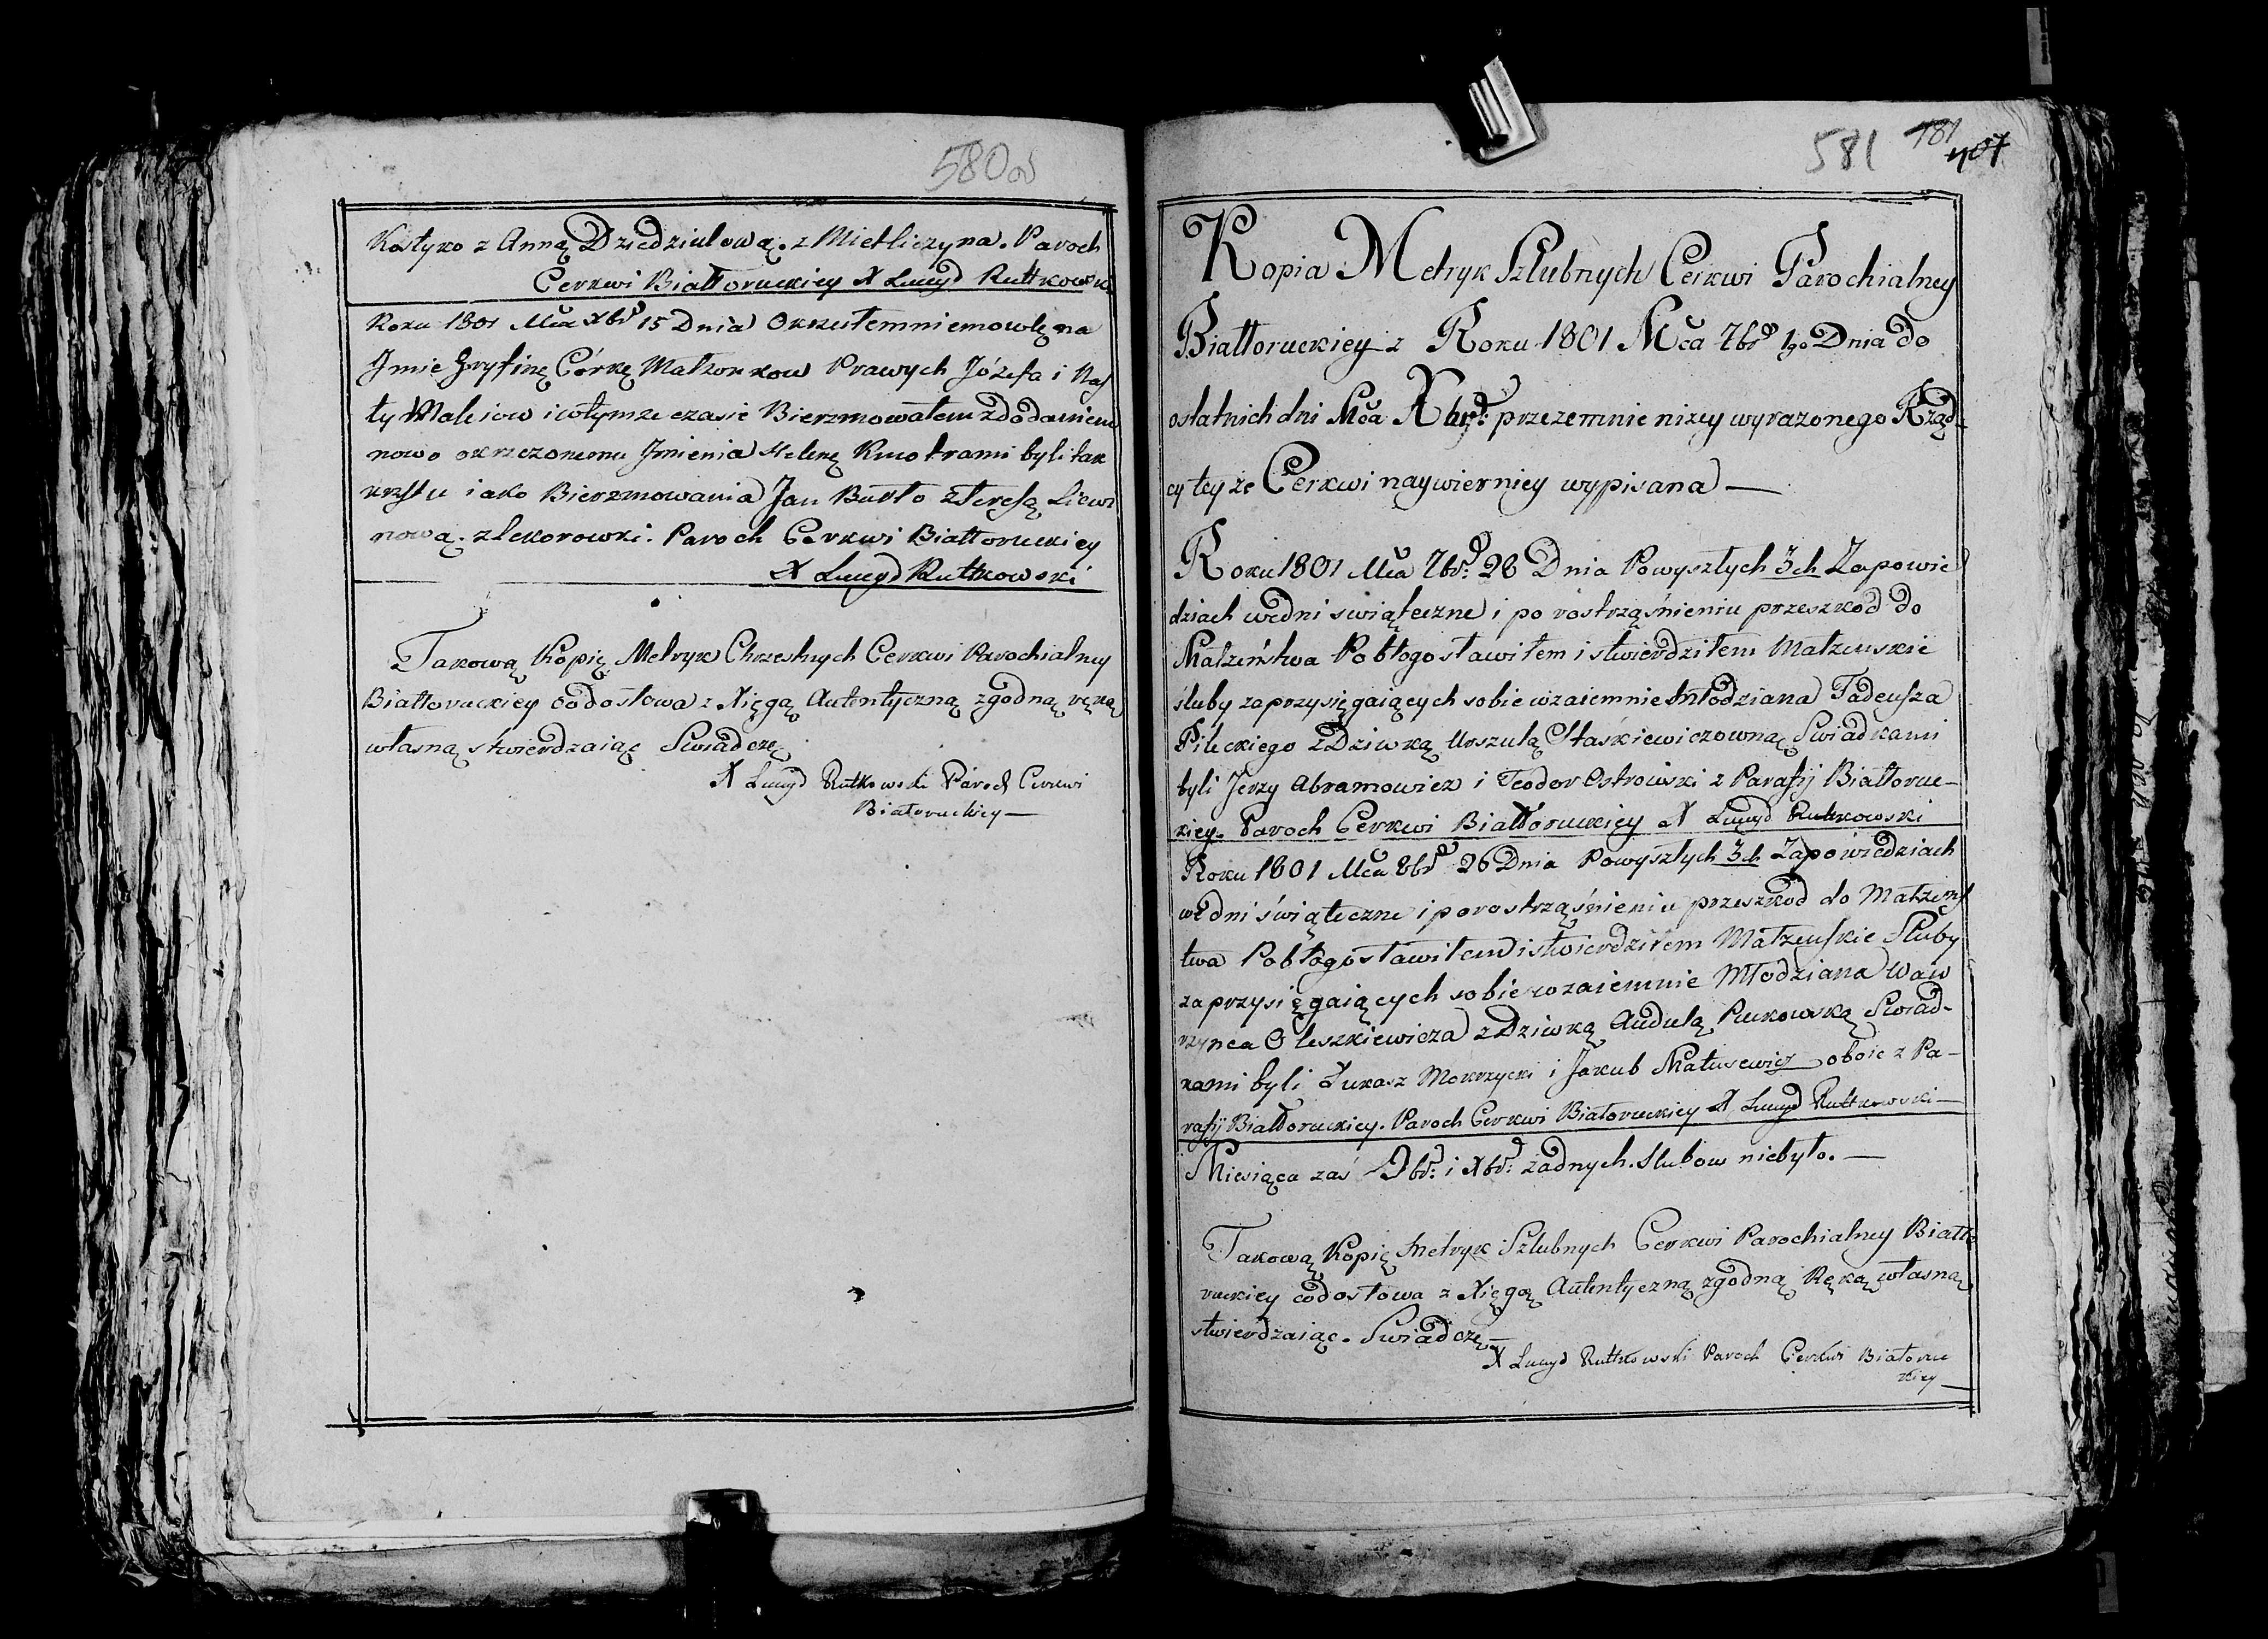 580 od
Kostyko z Anną Dziedziulową. z Mietliczyna. Paroch
Cerkwi Białloruckiey X Lucyd Rutkowski
Roku 1801 Mca Xbra 15 Dnia Okrzciłem niemowlę na
Jmie Gryfinę Córkę Małżonkow Prawych Józefa i Nas
ty Maleiow i wtymże czasie Bierzmowałem zdodaniem
nowo okrzczonemu Jmienia Helenę Kmotrami byli tak
krztu iako Bierzmowania Jan Burło z Teresą Liewi
nową. Paroch Cerkwi Białloruckiey
X Lucyd Rutkowski
Takową Kopię Metryk Chrzestnych Cerkwi Parochialney
Białloruckiey codosłowa z Xięgą Autentyczną zgodną ręką
własną stwierdzaiąc Swiadczę
X Lucyd Rutkowski Paroch Cerkwi
Białoruckiey —
581 181 407
Kopia Metryk Szlubnych Cerkwi Parochialney
Białloruckiey z Roku 1801 Mca 7bra 1go Dnia do
ostatnich dni Mca Xbra: przezemnie niżey wyrażonego Rząd-
cy teyże Cerkwi naywierniey wypisana —
Roku 1801 Mca 7bra: 28 Dnia Powyszłych 3ch Zapowie
dziach wedni swiąteczne i po rostrząśnieniu przeszkod do
Małżeństwa Pobłogosławiłem i stwierdziłem Małżenskie
śluby zaprzysięgaiących sobie wzaiemnie Młodziana Tadeusza
Pileckiego z Dziwką Urszulą Staśkiewiczowną Swiadkami
byli Jerzy Abramowicz i Teodor Ostrowski z Parafij Białloruc-
kiey. Paroch Cerkwi Białloruckiey X Lucyd Rutkowski
Roku 1801 Mca 8bra 26 Dnia Powyszłych 3ch Zapowiedziach
wedni świąteczne i porostrząśnieniu przeszkod do Małżens
twa Pobłogosławiłem i stwierdziłem Małżenskie Sluby
zaprzysięgaiących sobie wzaiemnie Młodziana Waw
rzynca Oleszkiewicza z Dziwką Audulą Puckowską Swiad-
kami byli Łukasz Mokrzycki i Jakub Matusewicz oboie z Pa-
rafij Białloruckiey. Paroch Cerkwi Białoruckiey X Lucyd Rutkowski —
Miesiąca zaś 9bra: i Xbra: żadnych. Slubow niebyło. —
Takową Kopię Metryk Szlubnych Cerkwi Parochialney Białło
ruckiey codosłowa z Xięgą Autentyczną zgodną Ręką własną
stwierdzaiąc. Swiadczę —
X Lucyd Rutkowski Paroch Cerkwi Białoruc
kiey —